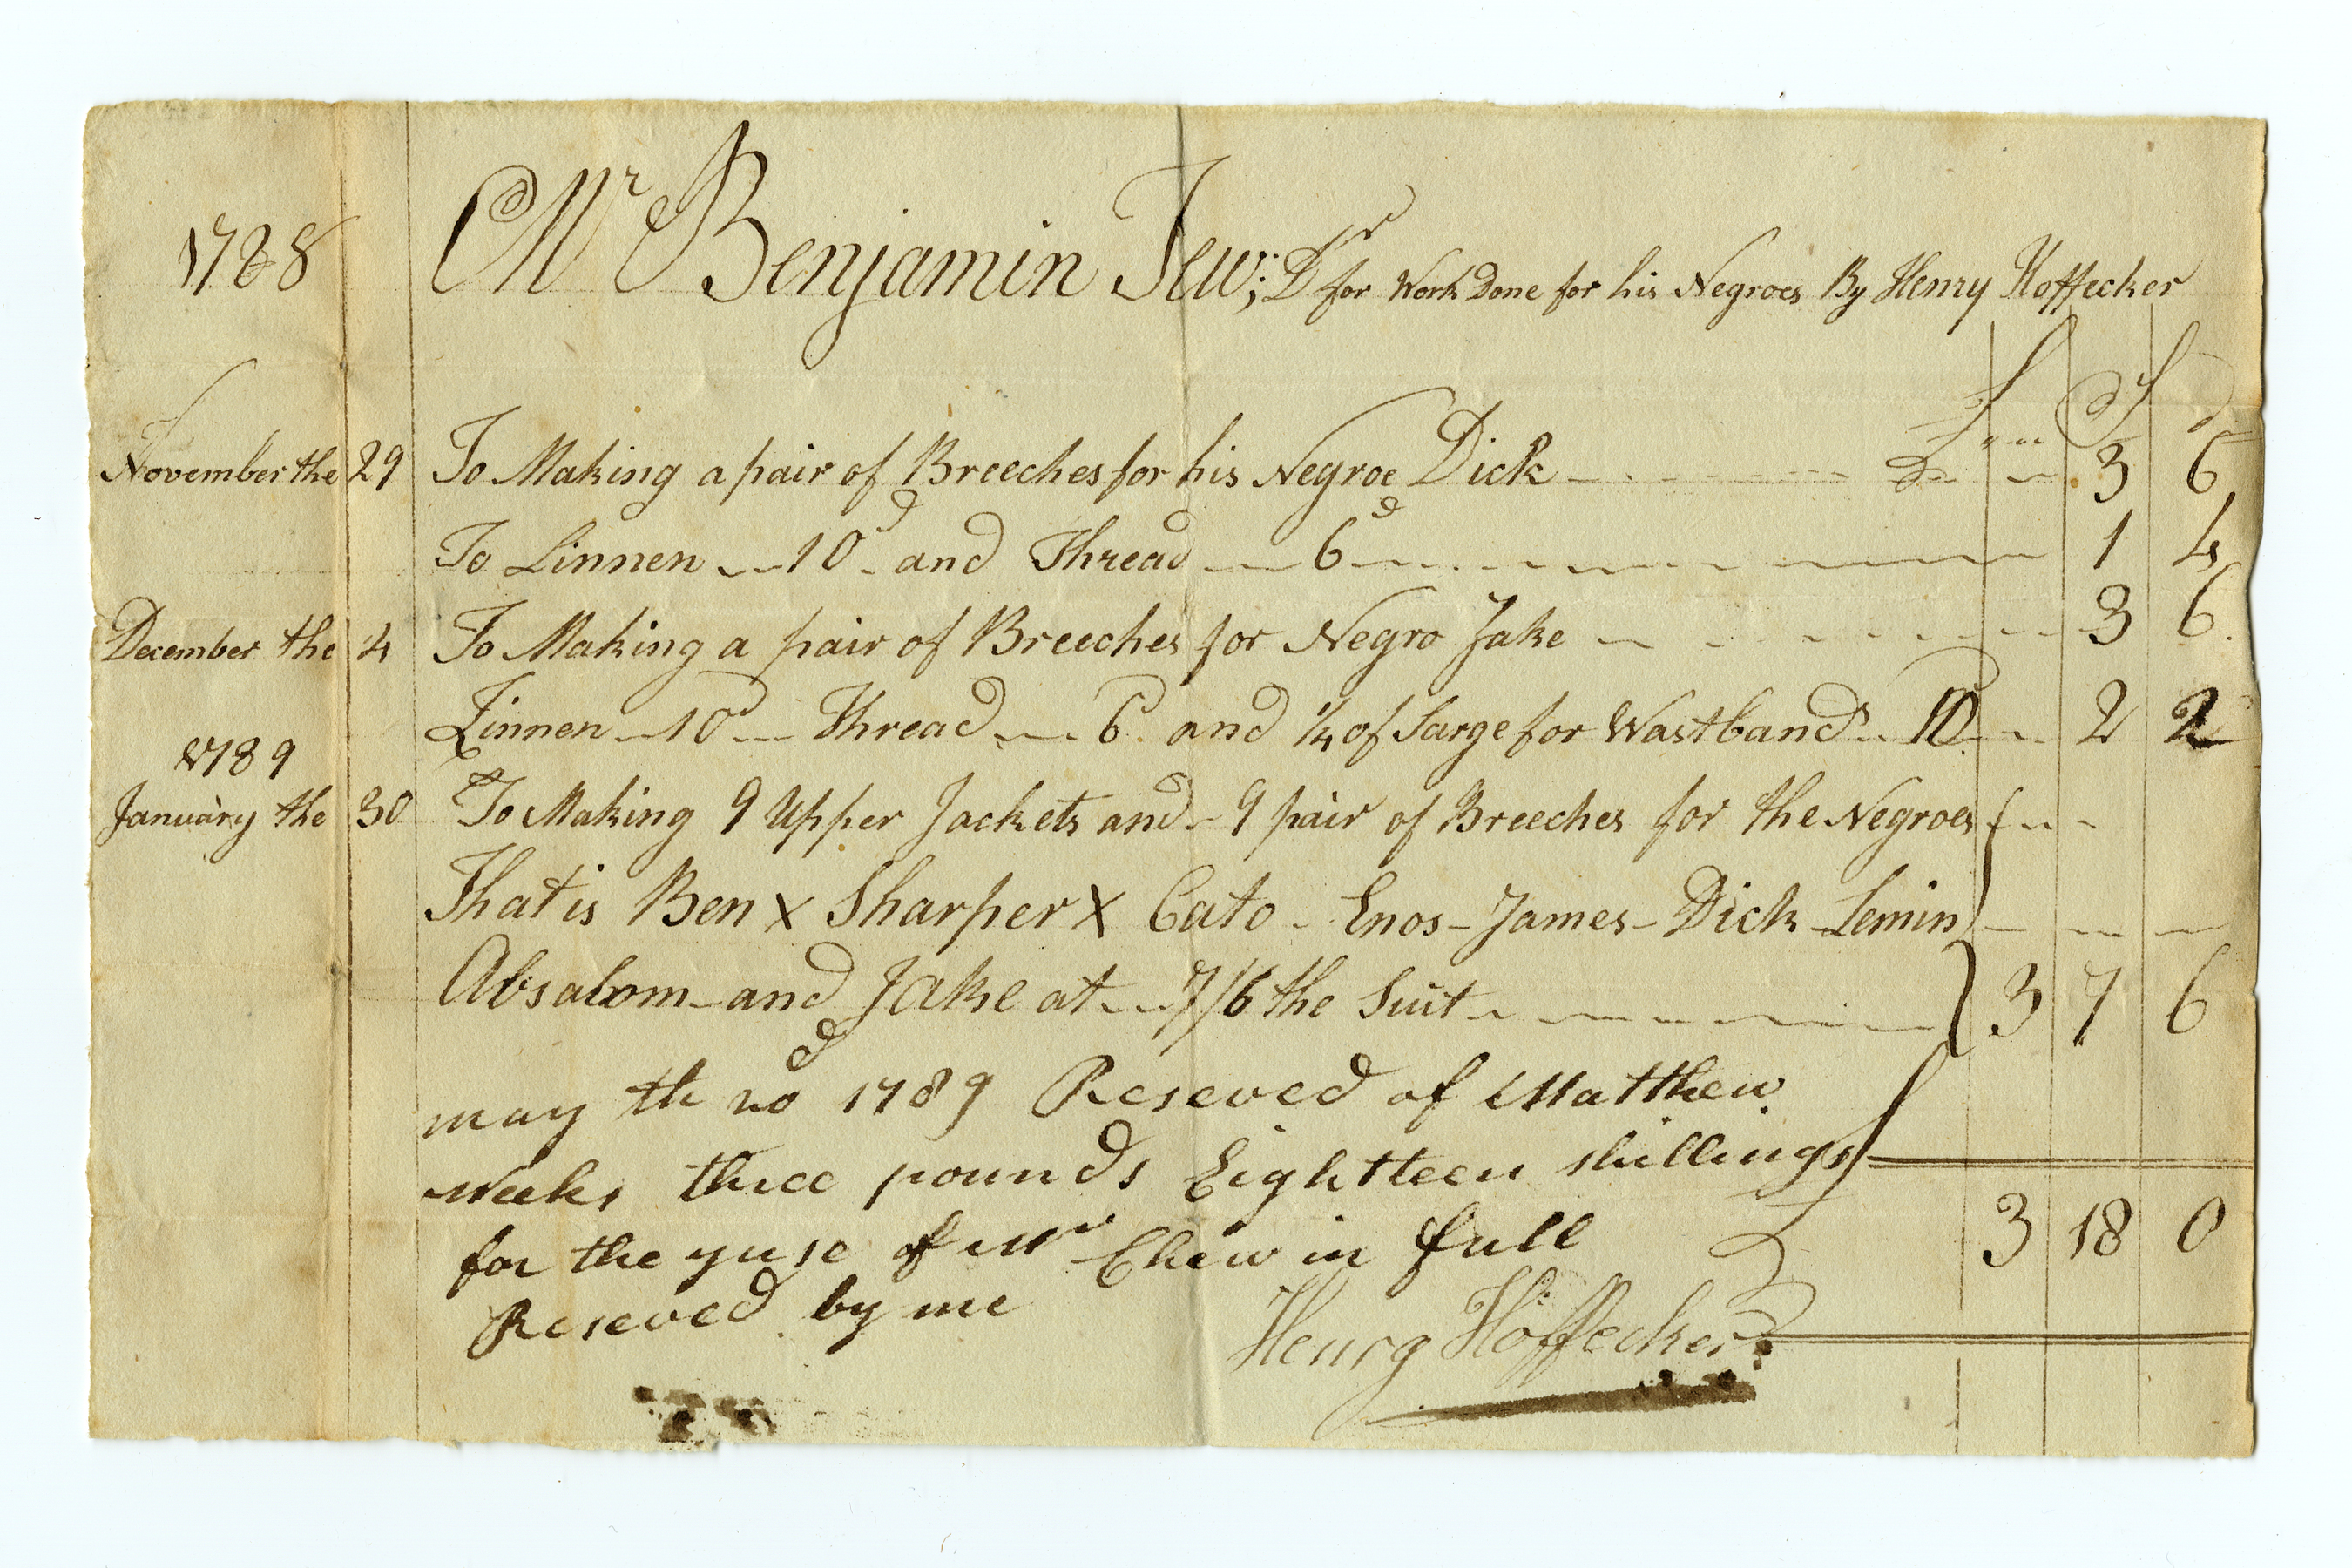 1788 Mr Benjamin Jew; Dr for Work Done for his Negroes By Henry Hoffecker
£ S d
November the 29 To Making a pair of Breeches for his Negroe Dick 3 6
To Linnen 10d and Thread 6d 1 4
December the 4 To Making a pair of Breeches for Negro Jake 3 6
Linnen 10d Thread 6d and 1/4 of Sarge for Wastband 10 2 2
1789
January the 30 To Making 9 Upper Jackets and 9 pair of Breeches for the Negroes
That is Ben x Sharper x Cato - Enos - James - Dick - Lemin
Absalom - and Jake at 7/6 the Suit 3 7 6
may th 20 1789 Reseved of Matthew
Weeks three pounds Eighteen shillings
for the yuse of Mr Chew in full 3 18 0
Reseved by me Henry Hoffecker